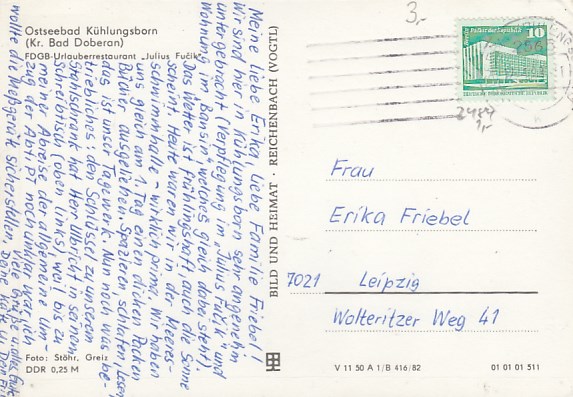 Ostseebad Kühlungsborn
(Kr. Bad Doberan)
FDGB-Urlauberrestaurant „Julius Fučik"
Meine liebe Erika, liebe Familie Friebel!
Wir sind hier in Kühlungsborn sehr angenehm
untergebracht (Verpflegung im „Julius Fučik" und
Wohnung im „Pansin", welches gleich daneben steht).
Das Wetter ist frühlingshaft, auch die Sonne
scheint. Heute waren wir in der Meeres-
schwimmhalle – wirklich prima. Wir haben
uns gleich am 1. Tag einen dicken Packen
Bücher ausgeliehen. Spazieren, schlafen, lesen,
das ist unser Tagewerk. Nun noch was be-
triebliches: den Schlüssel zu unserem
Stahlschrank hat Herr Ulbricht in seinem
Schreibtisch (oben links), weil bis zu
meiner Abreise der allgemeine Um-
zug der Abt. PT noch unklar war. Ich
wollte die Meßgeräte sicherstellen.
Viele Grüße
Deine
Foto: Stöhr, Greiz
DDR 0,25 M
BILD UND HEIMAT · REICHENBACH (VOGTL)
3,-
Berlin Palast der Republik
10
DEUTSCHE DEMOKRATISCHE REPUBLIK
2484
3,-
Frau
Erika Friebel
7021 Leipzig
Wolteritzer Weg 41
V 11 50 A 1/B 416/82
01 01 01 511